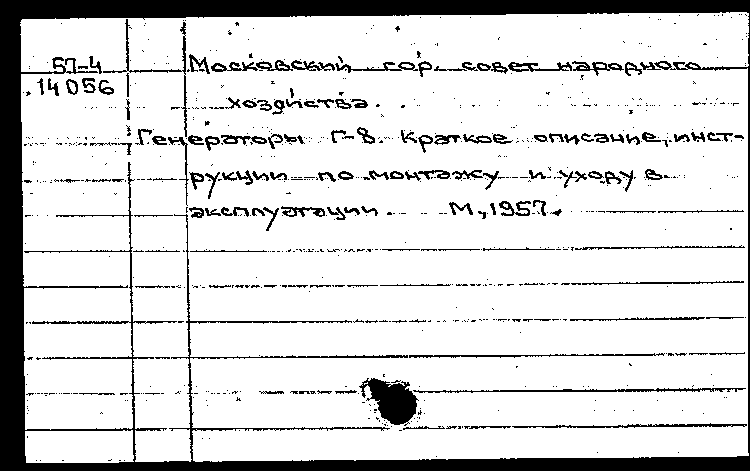 57-4
14056
Московский гор. совет народного
хозяйства.
Генераторы Г-8. Краткое описание, инст-
рукции по монтажу и уходу в
эксплуатации. М., 1957.